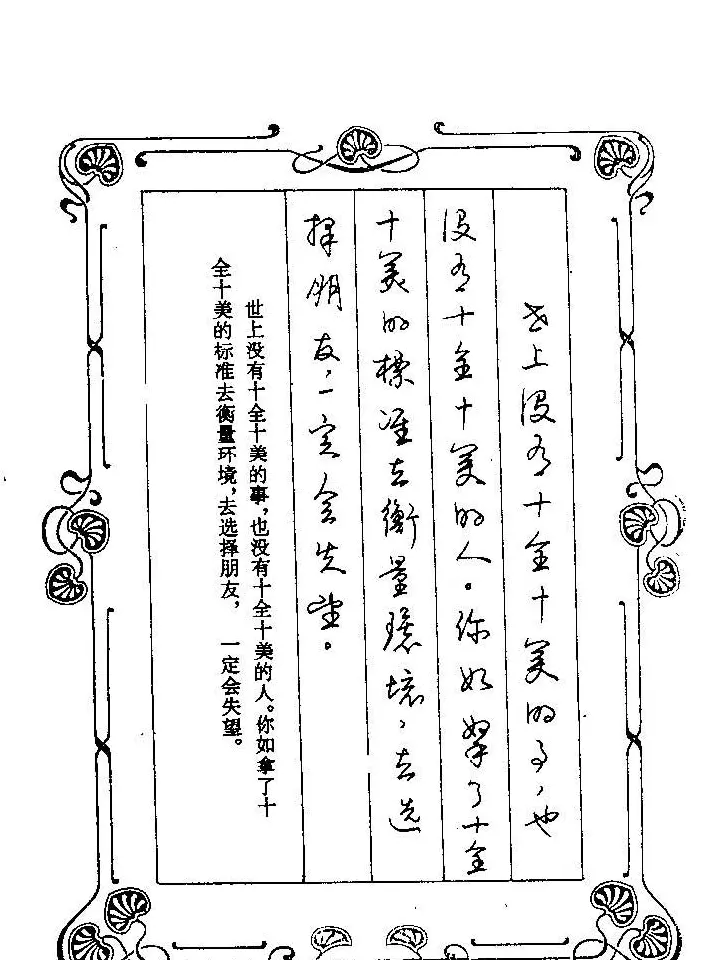 世上没有十全十美的事，也
没有十全十美的人。你如拿了十全
十美的標准去衡量環境，去选
择朋友，一定会失望。
世上没有十全十美的事，也没有十全十美的人。你如拿了十
全十美的标准去衡量环境，去选择朋友，一定会失望。